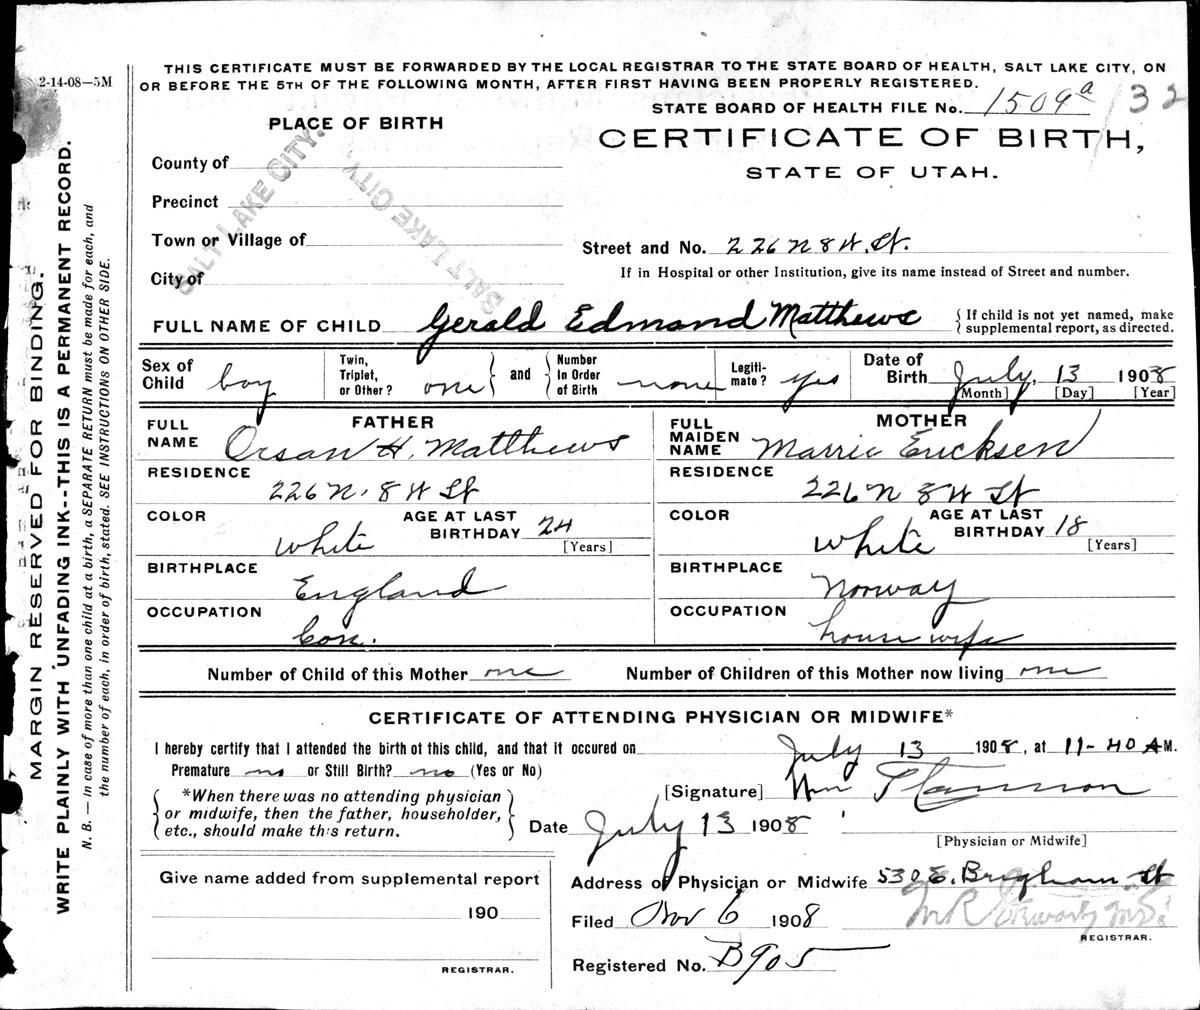 2-14-08—5M
THIS CERTIFICATE MUST BE FORWARDED BY THE LOCAL REGISTRAR TO THE STATE BOARD OF HEALTH, SALT LAKE CITY, ON
OR BEFORE THE 5TH OF THE FOLLOWING MONTH, AFTER FIRST HAVING BEEN PROPERLY REGISTERED.
STATE BOARD OF HEALTH FILE No. 1509a 132
PLACE OF BIRTH
CERTIFICATE OF BIRTH,
STATE OF UTAH.
County of
Precinct
Town or Village of
City of
SALT LAKE CITY.
SALT LAKE CITY.
Street and No. 226 N 8 W. St.
If in Hospital or other Institution, give its name instead of Street and number.
FULL NAME OF CHILD Gerald Edmond Matthews
{If child is not yet named, make
supplemental report, as directed.
Sex of Child boy
Twin, Triplet, or Other? one
and
Number In Order of Birth none
Legiti-mate? yes
Date of Birth July, 13 1908
[Month] [Day] [Year]
FATHER
FULL NAME Orson H. Matthews
RESIDENCE
226 N. 8 W St
COLOR white
AGE AT LAST BIRTHDAY 24
[Years]
BIRTHPLACE
England
OCCUPATION
Con.
MOTHER
FULL MAIDEN NAME Marrie Ericksen
RESIDENCE
226 N 8 W St
COLOR white
AGE AT LAST BIRTHDAY 18
[Years]
BIRTHPLACE
Norway
OCCUPATION
house wife
Number of Child of this Mother one
Number of Children of this Mother now living one
CERTIFICATE OF ATTENDING PHYSICIAN OR MIDWIFE*
I hereby certify that I attended the birth of this child, and that it occured on July 13 1908, at 11-40 A M.
Premature no or Still Birth? no (Yes or No)
{*When there was no attending physician
or midwife, then the father, householder,
etc., should make this return.}
[Signature] Wm
Date July 13 1908
[Physician or Midwife]
Give name added from supplemental report
190
REGISTRAR.
Address of Physician or Midwife 530 E. Brigham St
Filed Nov 6 1908
REGISTRAR.
Registered No. B905
MARGIN RESERVED FOR BINDING.
WRITE PLAINLY WITH UNFADING INK--THIS IS A PERMANENT RECORD.
N. B. — In case of more than one child at a birth, a SEPARATE RETURN must be made for each, and
the number of each, in order of birth, stated. SEE INSTRUCTIONS ON OTHER SIDE.